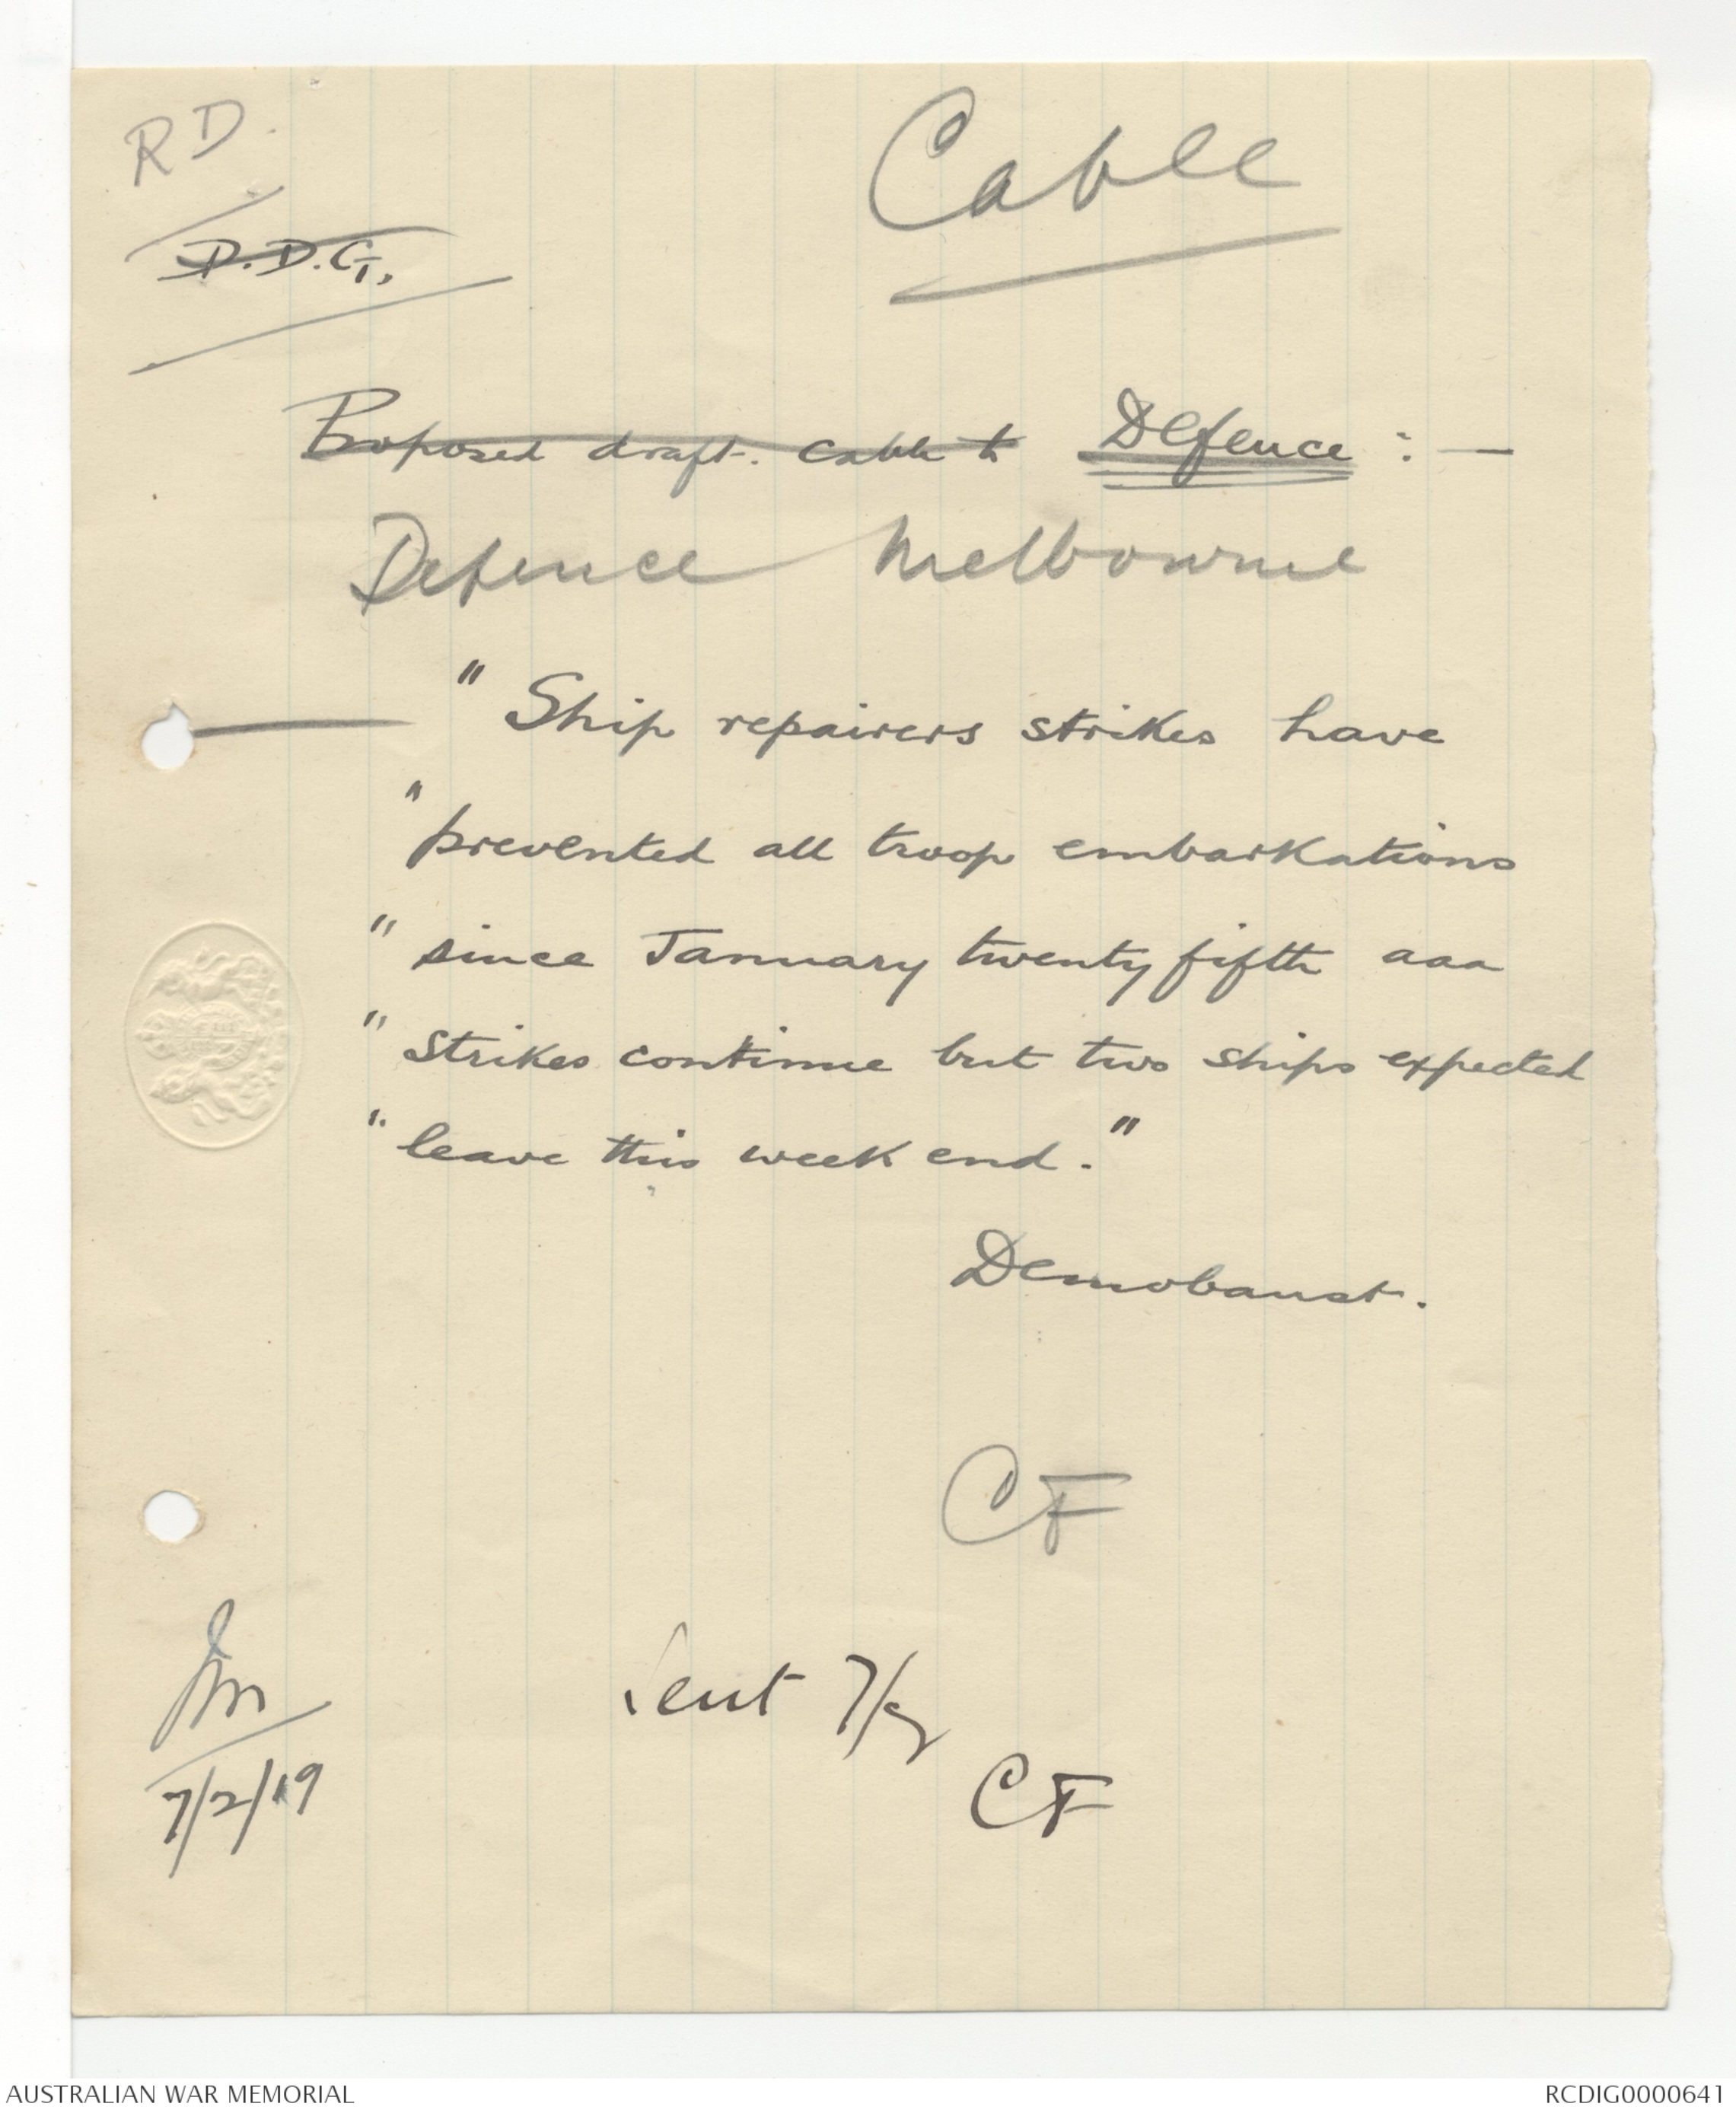 RD.
Cable
D.D.G.,
Proposed draft. cable to Defence :—
Defence Melbourne
" Ship repairers strikes have
" prevented all troop embarkations
" since January twenty fifth aaa
" strikes continue but two ships expected
" leave this week end."
Demobaust.
CF
Sent 7/2
CF
7/2/19
AUSTRALIAN WAR MEMORIAL
RCDIG0000641